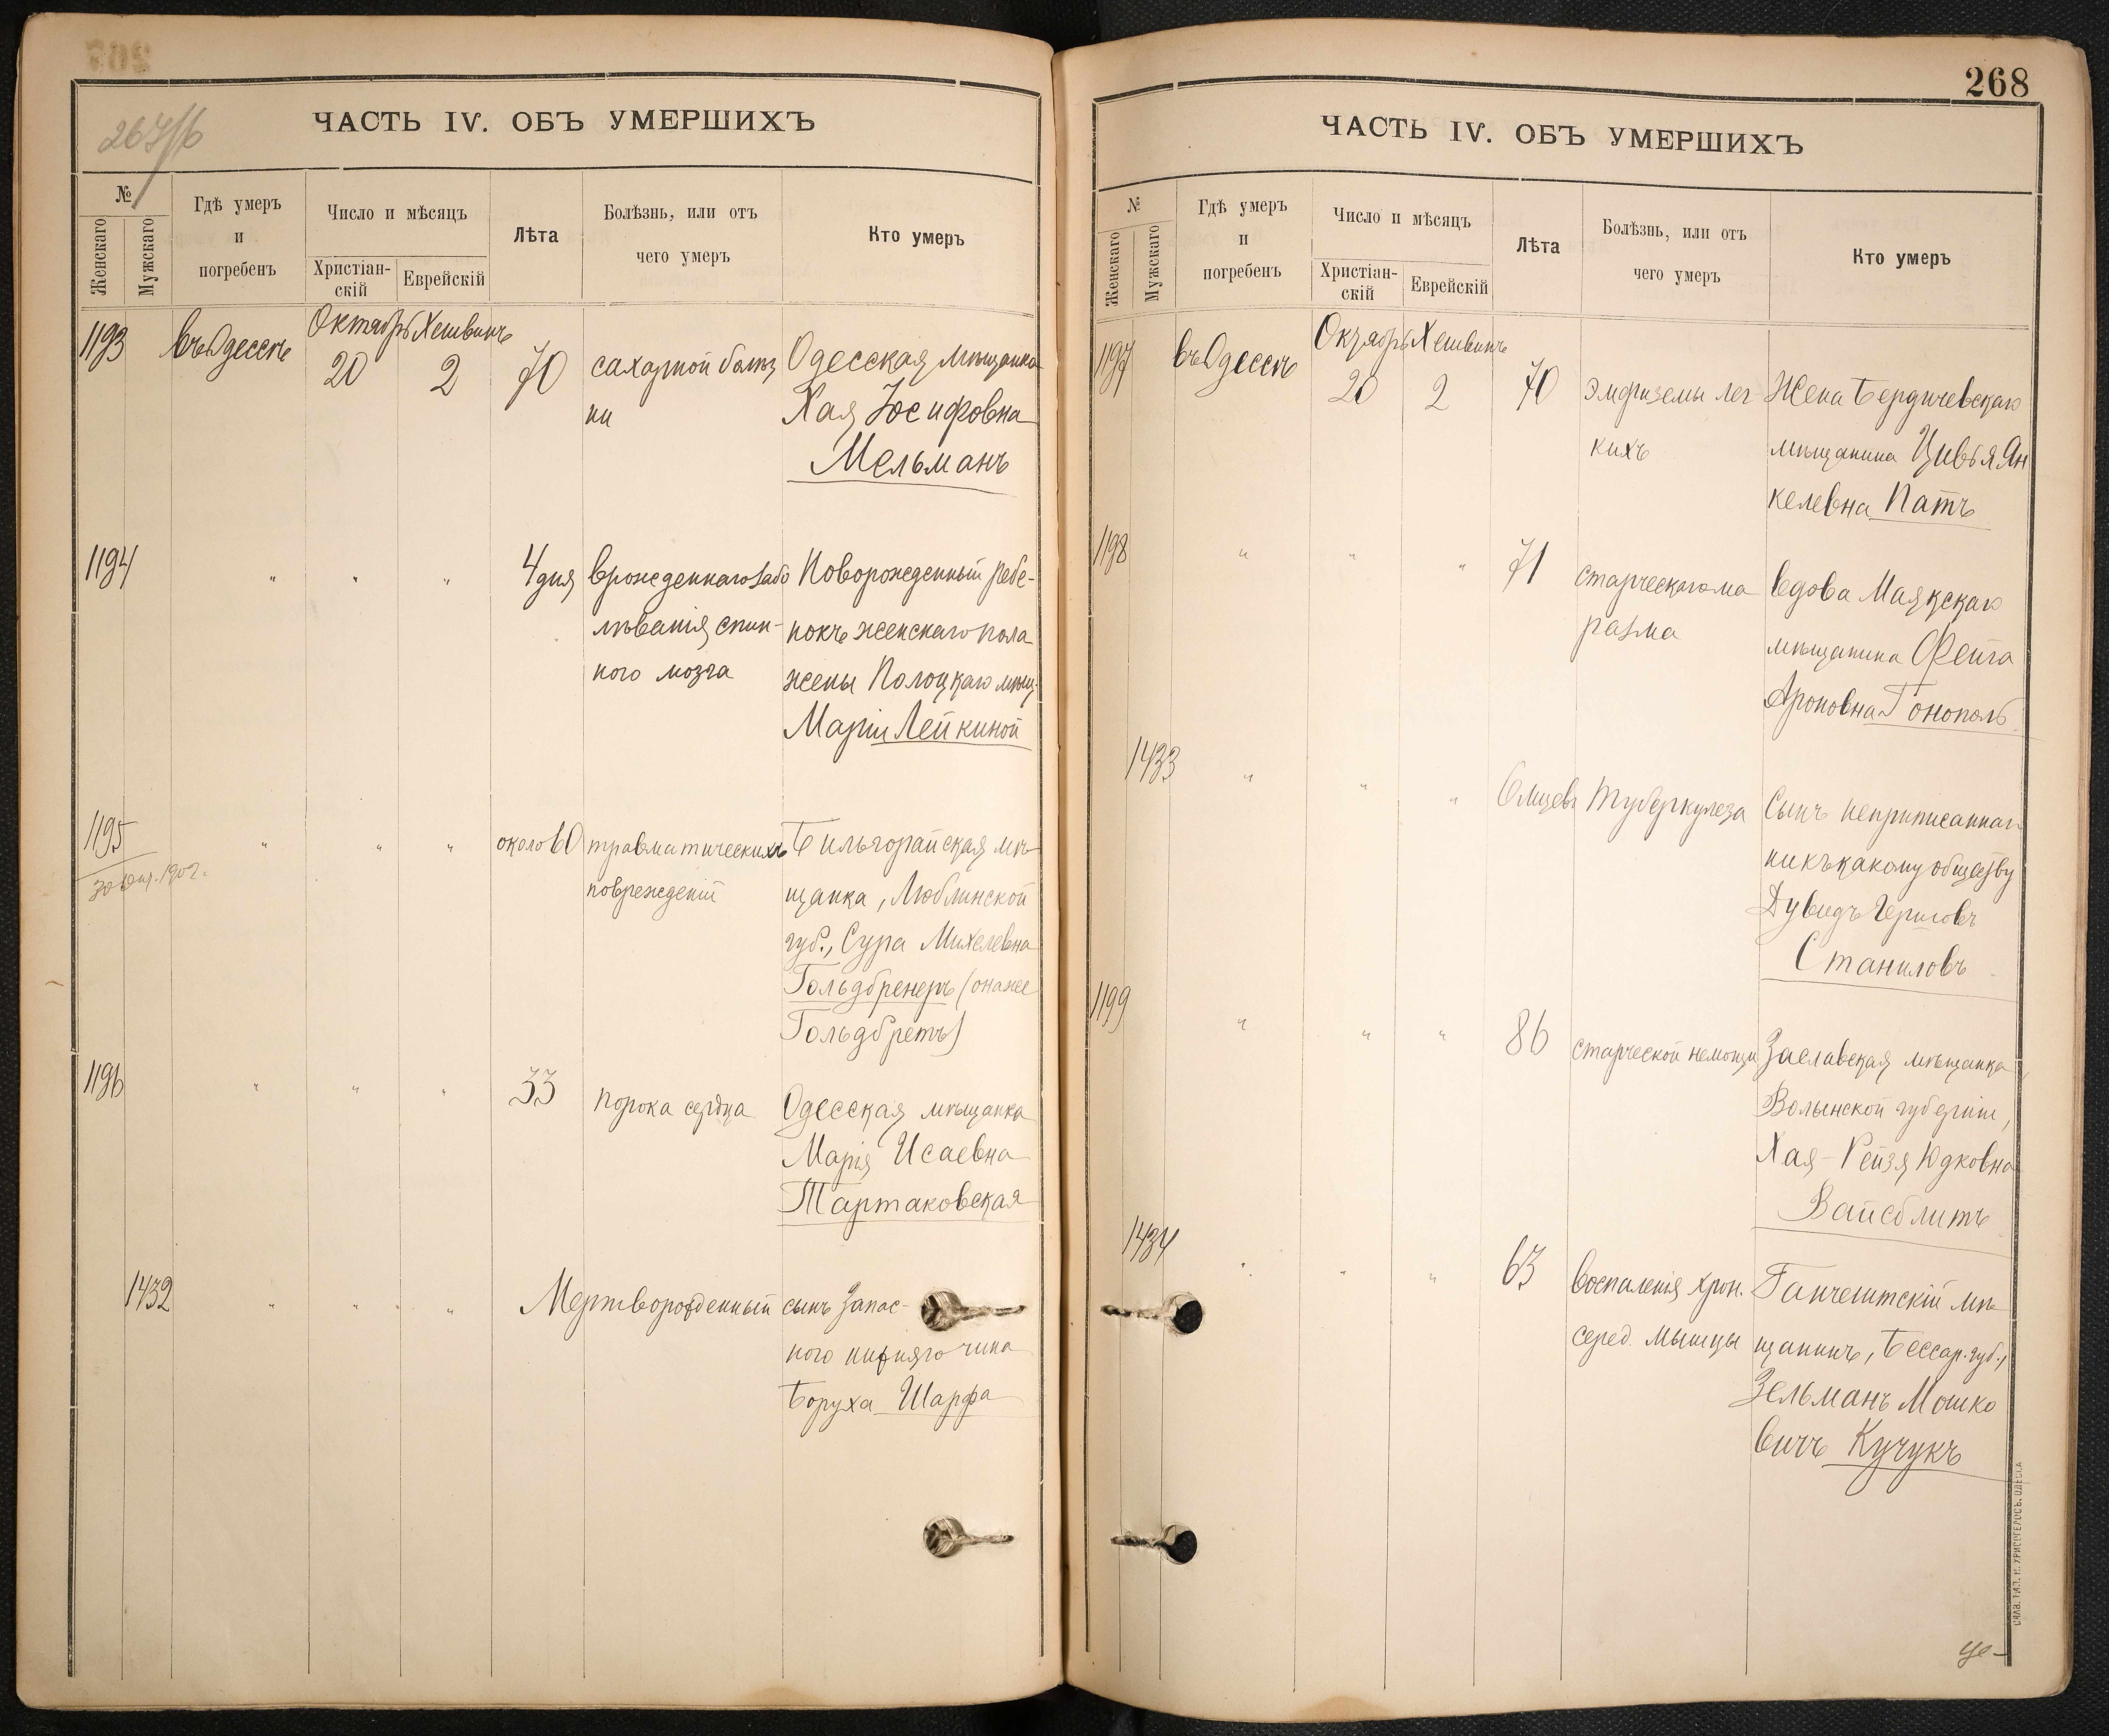 267/б
ЧАСТЬ IV. ОБЪ УМЕРШИХЪ
№
Женскаго
Мужскаго
Гдѣ умеръ
и
погребенъ
Число и мѣсяцъ
Христіан-
скій
Еврейскій
Лѣта
Болѣзнь, или отъ
чего умеръ
Кто умеръ
1193 въ Одессѣ Октябрь Хешванъ
20 2 70 сахарной болѣз Одесская мѣщанка
ни Хая Іосифовна
Мельманъ
1194 " " " 4 дня врожденнаго забо Новорожденный ребе-
лѣванія спин- нокъ женскаго пола
ного мозга жены Полоцкаго мѣщ.
Маріи Лейкиной
1195 " " " около 60 травматическихъ Бильгорайская мѣ
30 Окт. 1902г. повреждений щанка, Люблинской
губ., Сура Михелевна
Гольдбренеръ (она же
Гольдбретъ)
1196 " " " 33 порока сердца Одесская мѣщанка
Марія Исаевна
Тартаковская
1432 " " " Мертворожденный сынъ запас-
ного нижняго чина
Боруха Шарфа
268
ЧАСТЬ IV. ОБЪ УМЕРШИХЪ
№
Женскаго
Мужскаго
Гдѣ умеръ
и
погребенъ
Число и мѣсяцъ
Христіан-
скій
Еврейскій
Лѣта
Болѣзнь, или отъ
чего умеръ
Кто умеръ
1197 въ Одессѣ Октябрь Хешванъ
20 2 70 эмфиземы лег- Жена Бердичевскаго
кихъ мѣщанина Цивья Ян
келевна Патъ
1198 " " " 71 старческаго ма вдова Маякскаго
разма мѣщанина Фейга
Ароновна Гонополь
1433 " " " 6 мцевъ туберкулеза Сынъ неприписаннаго
ни къ какому обществу
Дувидъ Гершовъ
Станиловъ
1199 " " " 86 старческой немощи Заславская мѣщанка
Волынской губерніи,
Хая-Рейзя Юдковна
Вайсблитъ
1434 " " " 63 воспаленія хрон. Ганчештскій мѣ
серед. мышцы щанинъ, Бессар. губ.,
Зельманъ Мошко
вичъ Кучукъ